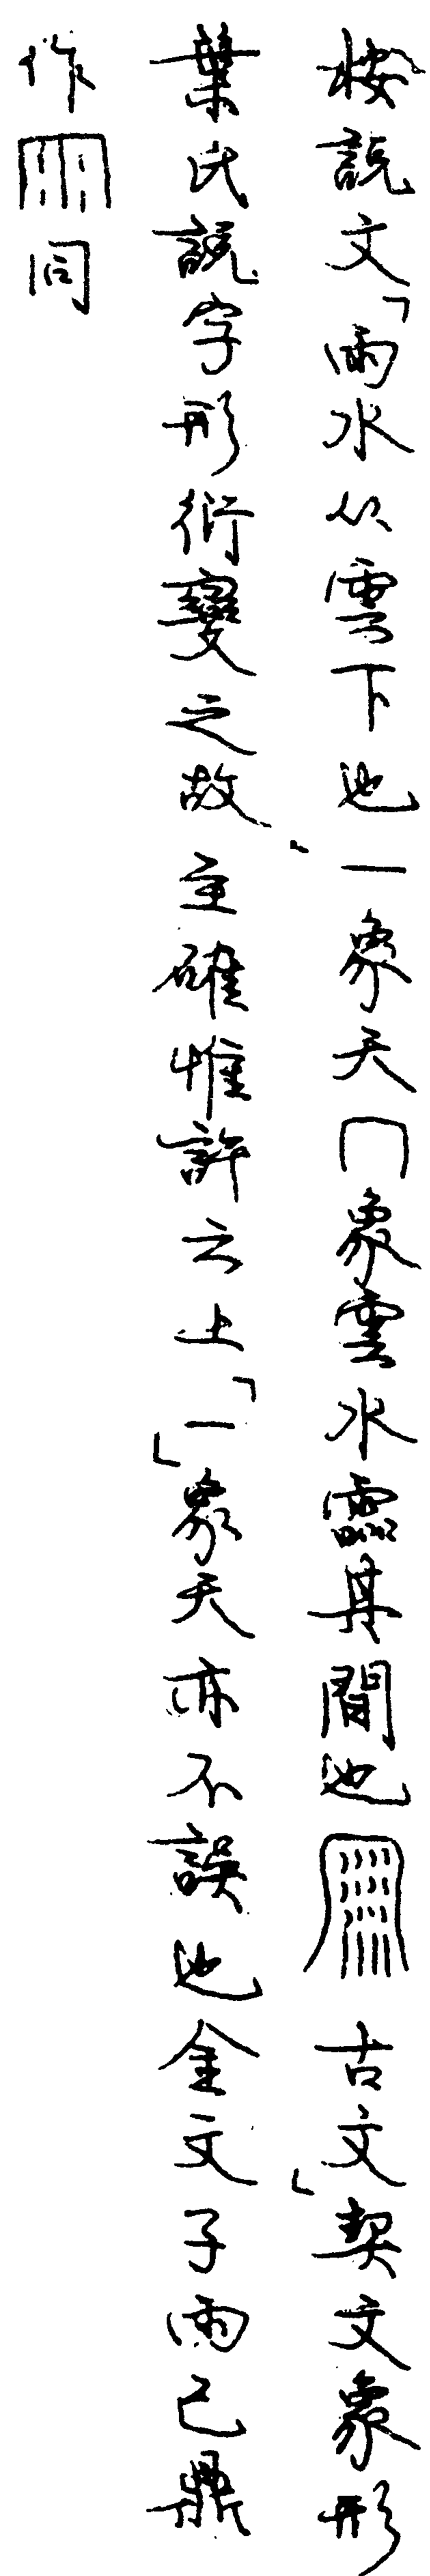 按説文「雨水从雲下也一象天冂象雲水霝其間也古文」契文象形
葉氏説字形衍變之故至確惟許云上「一」象天亦不誤也金文子雨己鼎
作同